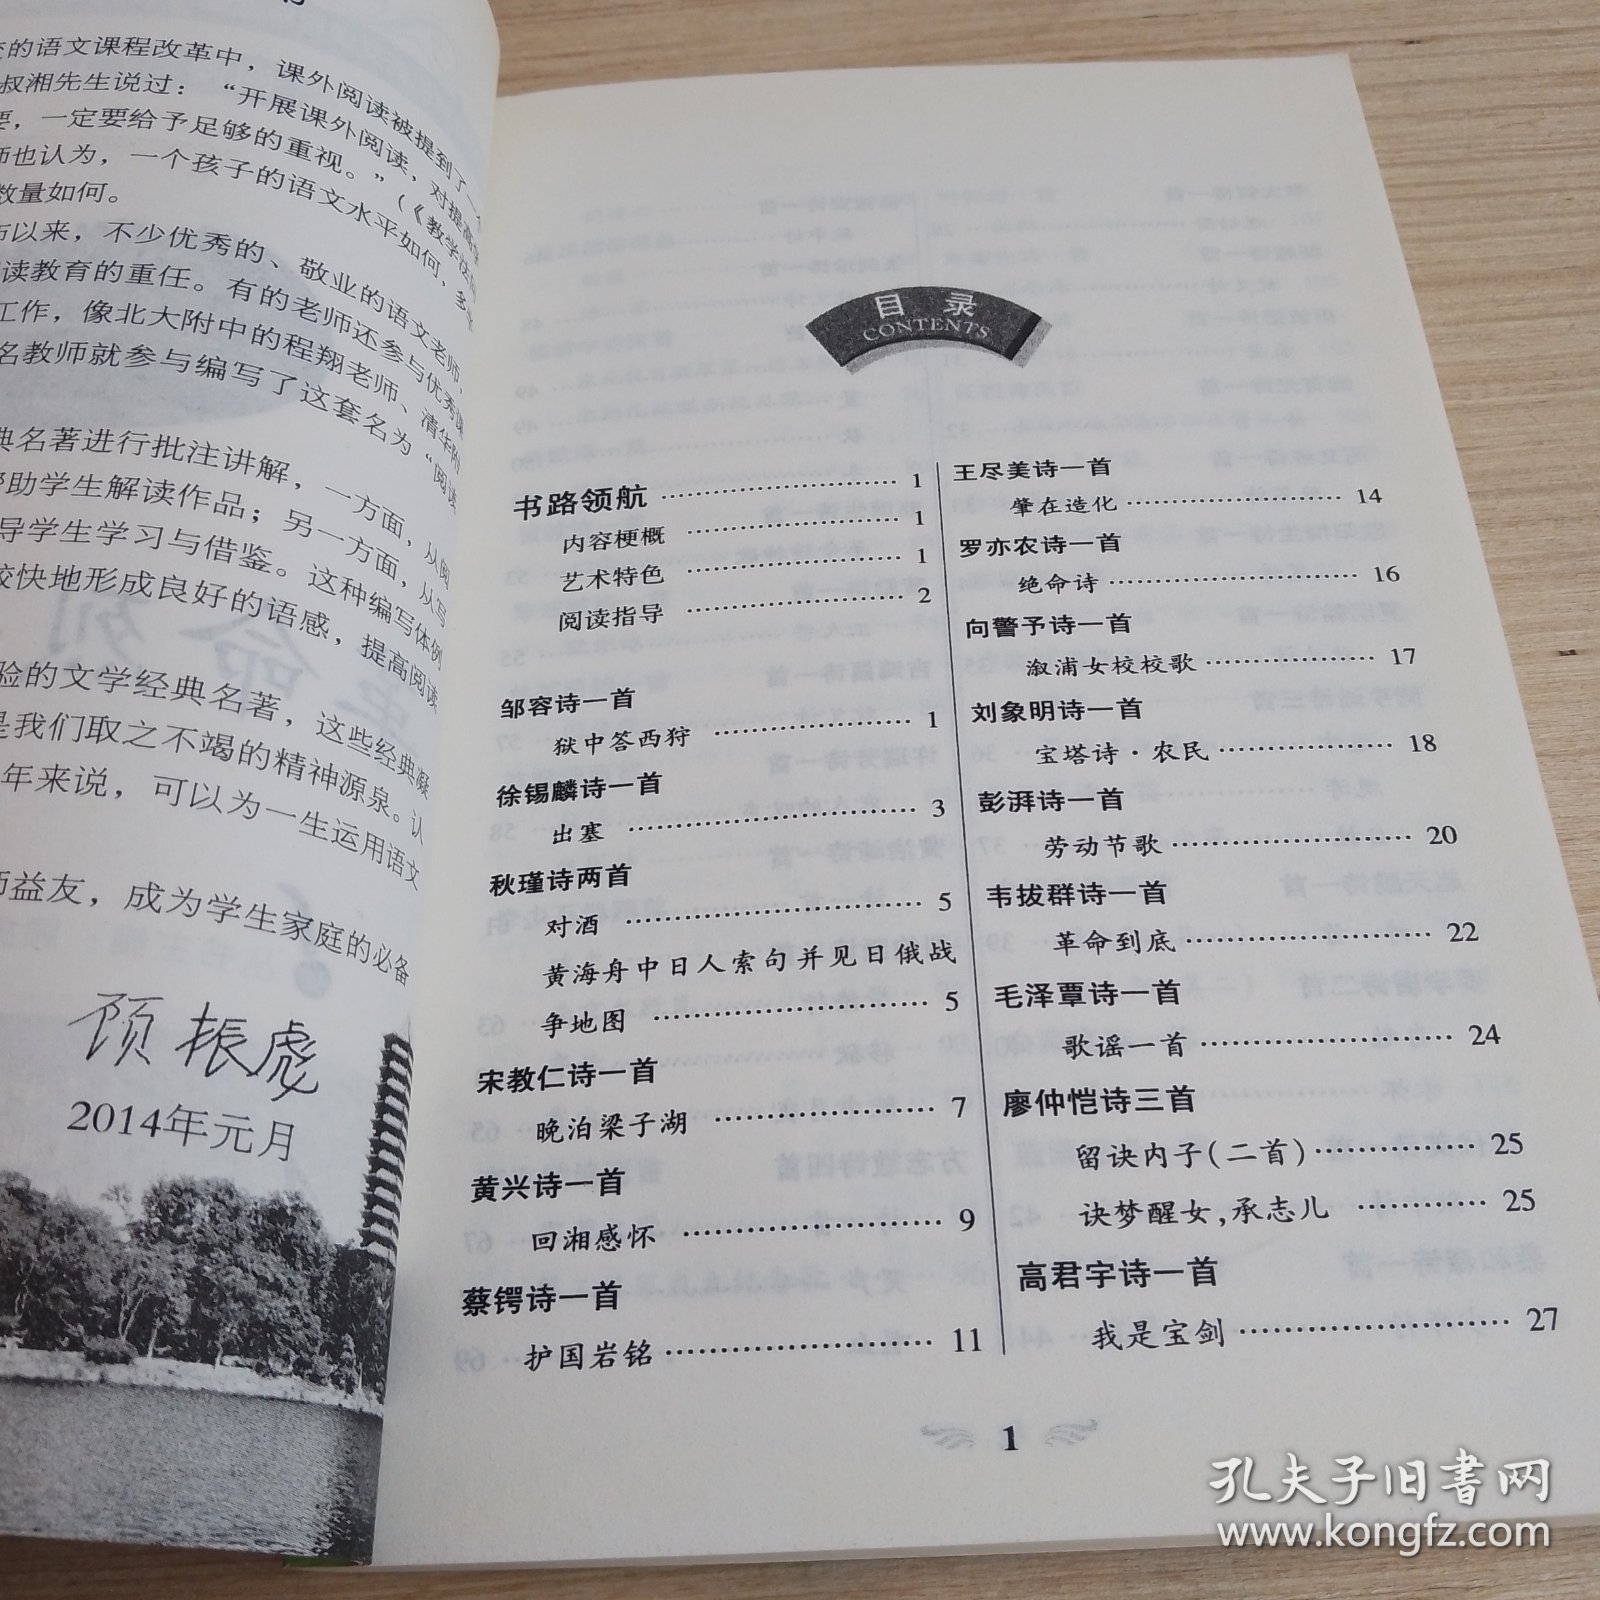 的语文课程改革中，课外阅读被提到了一个
叔湘先生说过：“开展课外阅读，对提高学
要，一定要给予足够的重视。”（《教学法
师也认为，一个孩子的语文水平如何，多半
数量如何。
布以来，不少优秀的、敬业的语文老师，
阅读教育的重任。有的老师还参与优秀课
工作，像北大附中的程翔老师、清华附
名教师就参与编写了这套名为“阅读
典名著进行批注讲解，一方面，从阅
帮助学生解读作品；另一方面，从写
导学生学习与借鉴。这种编写体例
较快地形成良好的语感，提高阅读
验的文学经典名著，这些经典凝
是我们取之不竭的精神源泉。认
年来说，可以为一生运用语文
师益友，成为学生家庭的必备
顾振彪
2014年元月
目录
CONTENTS
书路领航 …… 1
内容梗概 …… 1
艺术特色 …… 1
阅读指导 …… 2
邹容诗一首
狱中答西狩 …… 1
徐锡麟诗一首
出塞 …… 3
秋瑾诗两首
对酒 …… 5
黄海舟中日人索句并见日俄战
争地图 …… 5
宋教仁诗一首
晚泊梁子湖 …… 7
黄兴诗一首
回湘感怀 …… 9
蔡锷诗一首
护国岩铭 …… 11
王尽美诗一首
肇在造化 …… 14
罗亦农诗一首
绝命诗 …… 16
向警予诗一首
溆浦女校校歌 …… 17
刘象明诗一首
宝塔诗·农民 …… 18
彭湃诗一首
劳动节歌 …… 20
韦拔群诗一首
革命到底 …… 22
毛泽覃诗一首
歌谣一首 …… 24
廖仲恺诗三首
留诀内子（二首） …… 25
诀梦醒女，承志儿 …… 25
高君宇诗一首
我是宝剑 …… 27
1
孔夫子旧书网
www.kongfz.com